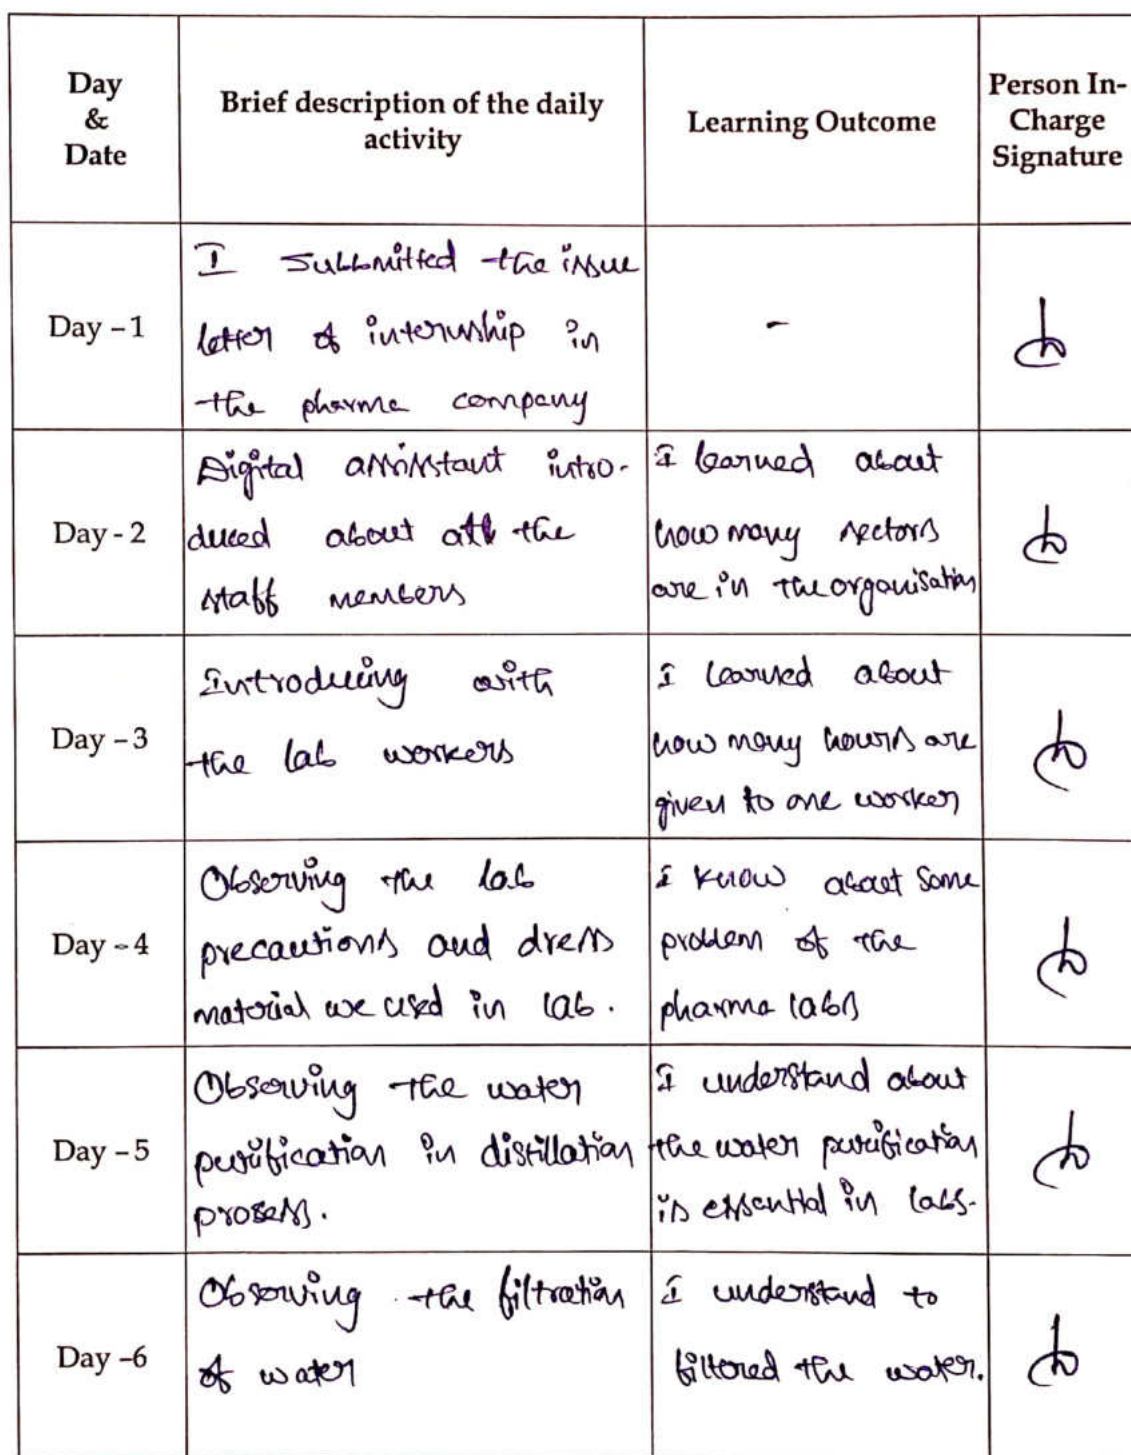 Day
&
Date
Brief description of the daily
activity
Learning Outcome
Person In-
Charge
Signature
Day – 1
I submitted the issue
letter of internship in
the pharma company
-
Day - 2
Digital assistant intro-
duced about all the
staff members
I learned about
how many sectors
are in the organisation
Day – 3
Introducing with
the lab workers
I learned about
how many hours are
given to one worker
Day – 4
Observing the lab
precautions and dress
material we used in lab.
I know about some
problem of the
pharma labs
Day – 5
Observing the water
purification in distillation
prosess.
I understand about
the water purification
is essential in labs.
Day –6
Observing the filtration
of water
I understand to
filtered the water.